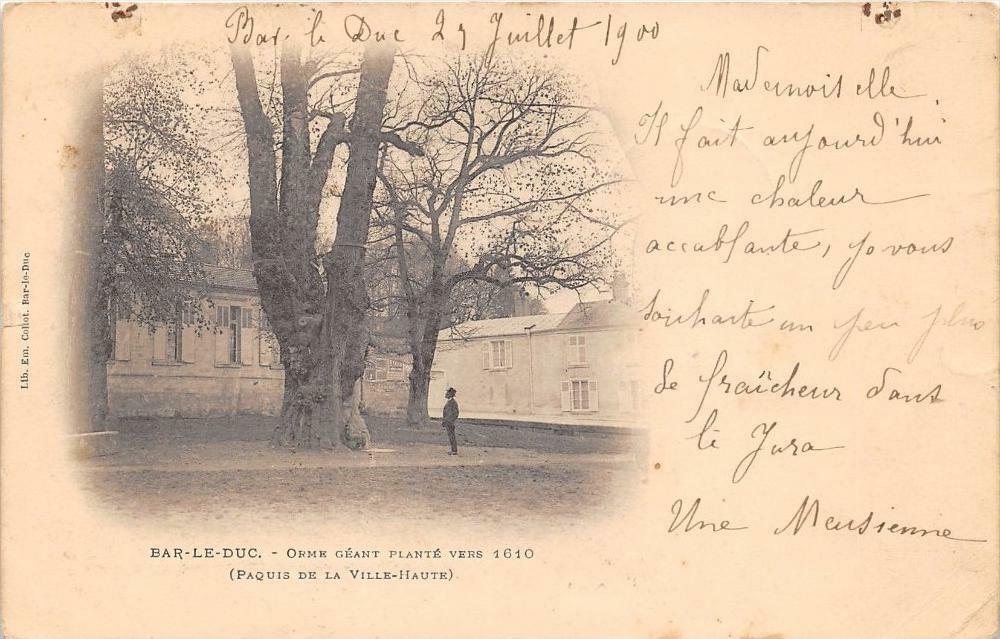 Bar le Duc 27 Juillet 1900
Mademoiselle
Il fait aujourd'hui
une chaleur
accablante, je vous
souhaite un peu plus
de fraîcheur dans
le Jura
Une Meusienne
Lib. Em. Collot. Bar-le-Duc
BAR-LE-DUC. - ORME GÉANT PLANTÉ VERS 1610
(PAQUIS DE LA VILLE-HAUTE)